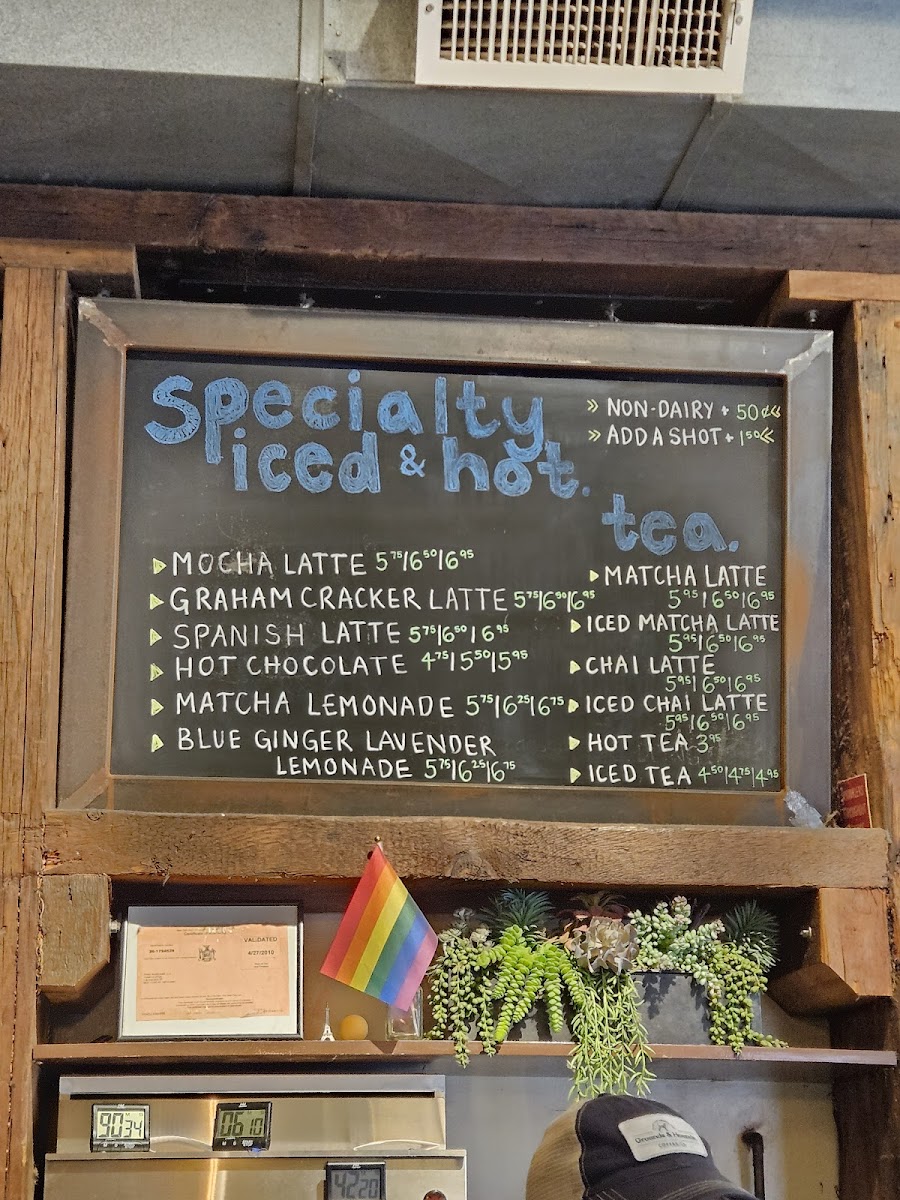 Specialty
iced & hot.
» NON-DAIRY + 50¢ «
» ADD A SHOT + 1⁵⁰ «
MOCHA LATTE 5⁷⁵/6⁵⁰/6⁹⁵
GRAHAM CRACKER LATTE 5⁷⁵/6⁵⁰/6⁹⁵
SPANISH LATTE 5⁷⁵/6⁵⁰/6⁹⁵
HOT CHOCOLATE 4⁷⁵/5⁵⁰/5⁹⁵
MATCHA LEMONADE 5⁷⁵/6²⁵/6⁷⁵
BLUE GINGER LAVENDER
LEMONADE 5⁷⁵/6²⁵/6⁷⁵
tea.
MATCHA LATTE
5⁹⁵/6⁵⁰/6⁹⁵
ICED MATCHA LATTE
5⁹⁵/6⁵⁰/6⁹⁵
CHAI LATTE
5⁹⁵/6⁵⁰/6⁹⁵
ICED CHAI LATTE
5⁹⁵/6⁵⁰/6⁹⁵
HOT TEA 3⁹⁵
ICED TEA 4⁵⁰/4⁷⁵/4⁹⁵
VALIDATED
4/27/2010
9034
0610
4220